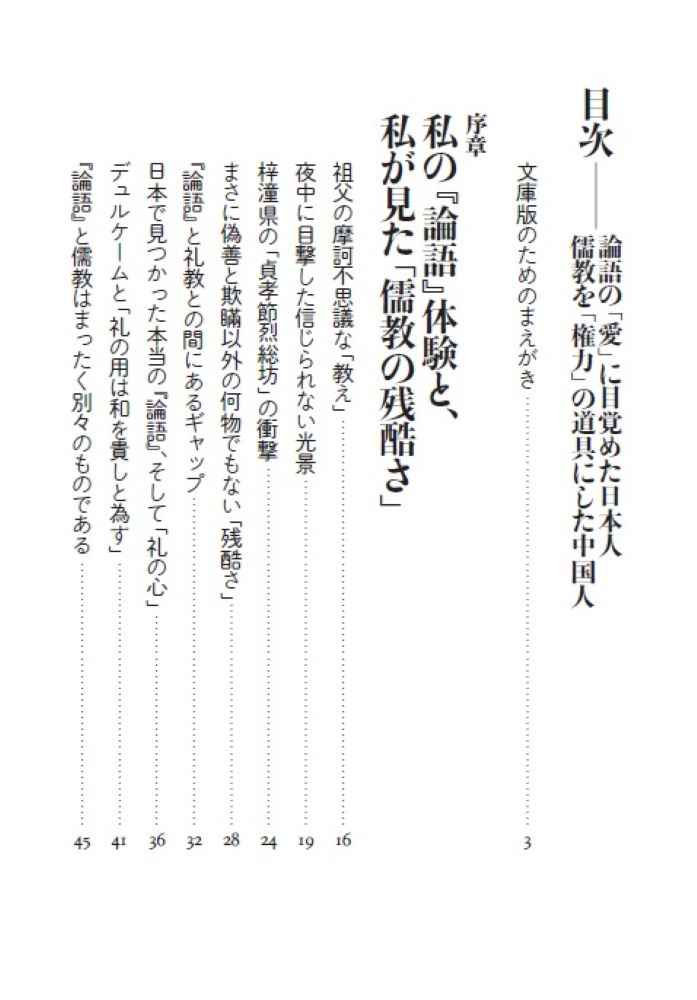 目次――論語の「愛」に目覚めた日本人
儒教を「権力」の道具にした中国人
文庫版のためのまえがき 3
序章
私の『論語』体験と、
私が見た「儒教の残酷さ」
祖父の摩訶不思議な「教え」 16
夜中に目撃した信じられない光景 19
梓潼県の「貞孝節烈総坊」の衝撃 24
まさに偽善と欺瞞以外の何物でもない「残酷さ」 28
『論語』と礼教との間にあるギャップ 32
日本で見つかった本当の『論語』、そして「礼の心」 36
デュルケームと「礼の用は和を貴しと為す」 41
『論語』と儒教はまったく別々のものである 45